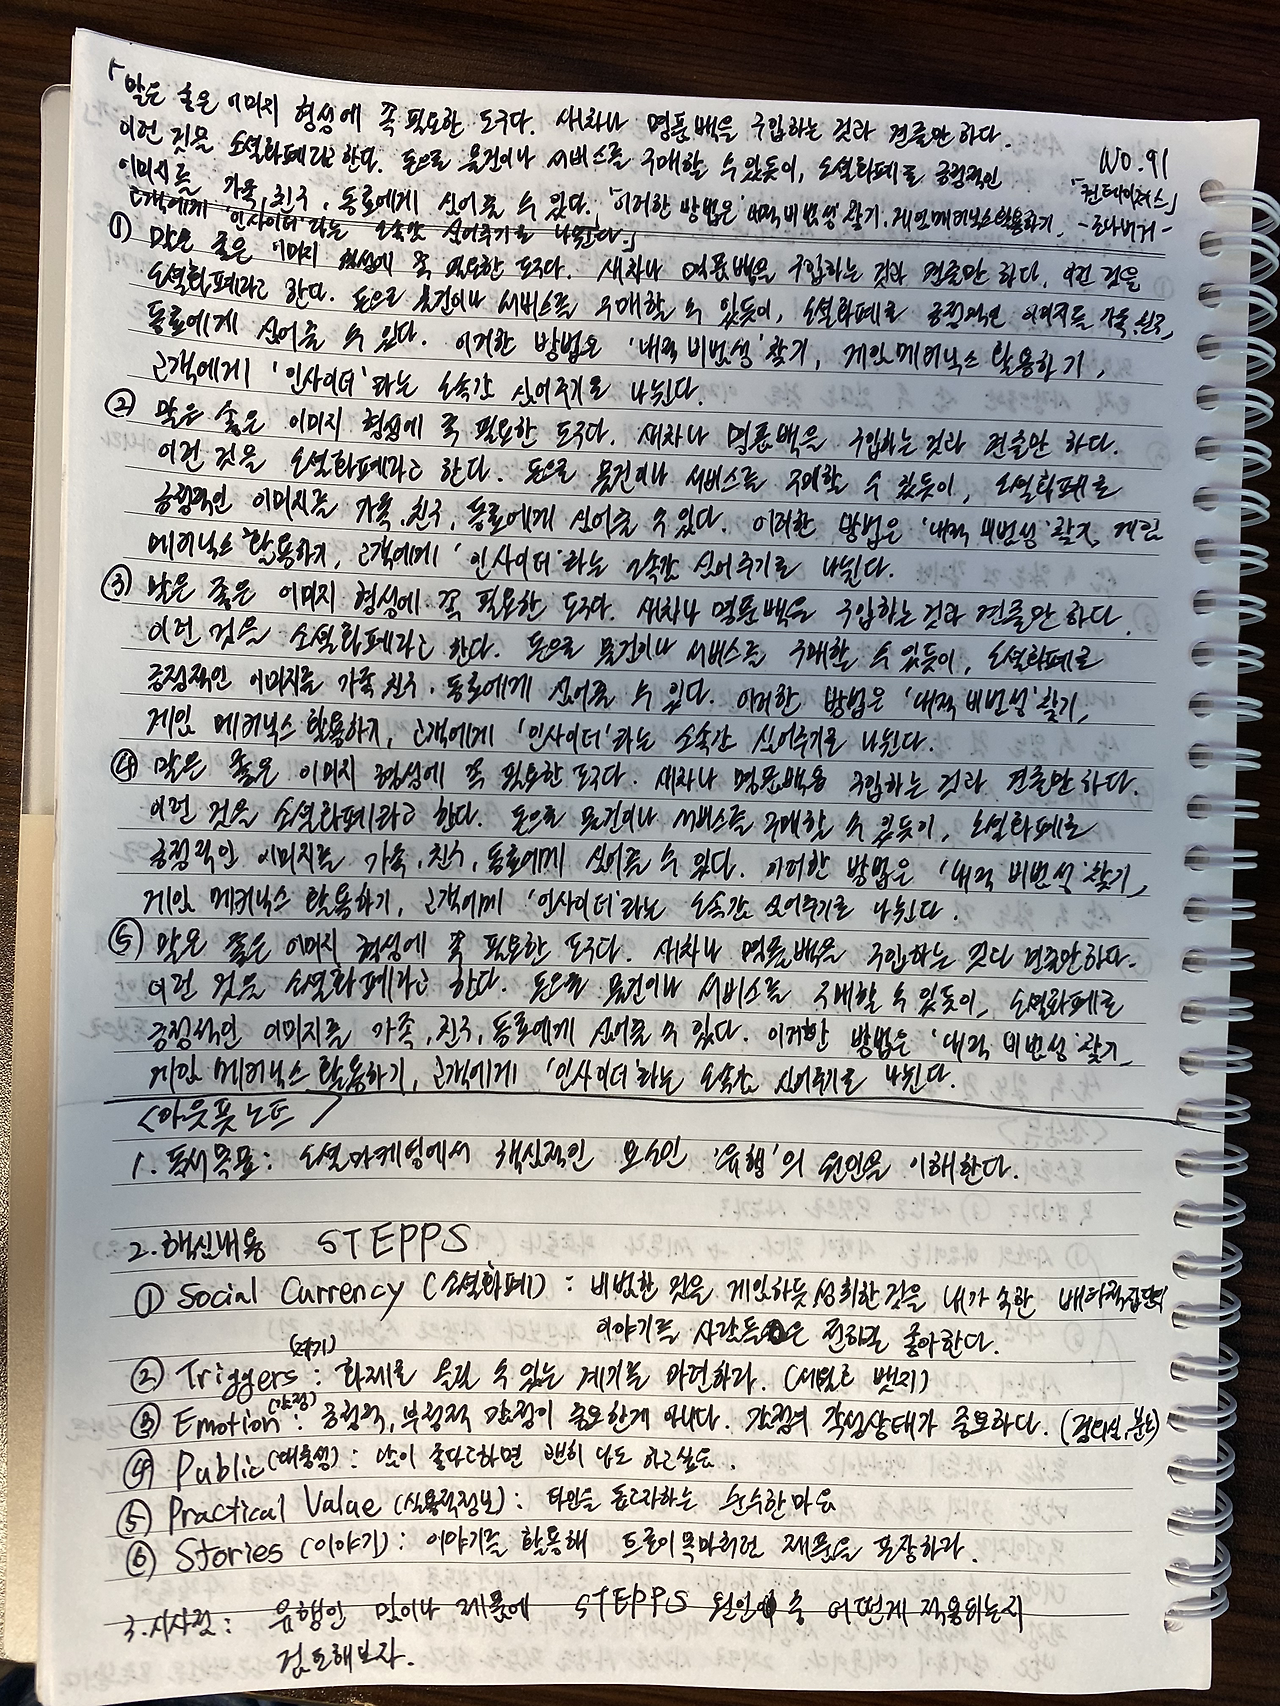 「말은 좋은 이미지 형성에 꼭 필요한 도구다. 새차나 명품백을 구입하는 것과 견줄만 하다.
이런 것을 소셜화폐라고 한다. 돈으로 물건이나 서비스를 구매할 수 있듯이, 소셜화폐로 긍정적인
No.91
이미지를 가족, 친구, 동료에게 심어줄 수 있다. 이러한 방법은 '내적 비범성' 찾기, 게임 메커닉스 활용하기,
「컨테이저스」
고객에게 '인사이더'라는 소속감 심어주기로 나뉜다.」
-조나버거-
① 말은 좋은 이미지 형성에 꼭 필요한 도구다. 새차나 명품백을 구입하는 것과 견줄만 하다. 이런 것을
소셜화폐라고 한다. 돈으로 물건이나 서비스를 구매할 수 있듯이, 소셜화폐로 긍정적인 이미지를 가족, 친구,
동료에게 심어줄 수 있다. 이러한 방법은 '내적 비범성' 찾기, 게임 메커닉스 활용하기,
고객에게 '인사이더'라는 소속감 심어주기로 나뉜다.
② 말은 좋은 이미지 형성에 꼭 필요한 도구다. 새차나 명품백을 구입하는 것과 견줄만 하다.
이런 것을 소셜화폐라고 한다. 돈으로 물건이나 서비스를 구매할 수 있듯이, 소셜화폐로
긍정적인 이미지를 가족, 친구, 동료에게 심어줄 수 있다. 이러한 방법은 '내적 비범성' 찾기, 게임
메커닉스 활용하기, 고객에게 '인사이더'라는 소속감 심어주기로 나뉜다.
③ 말은 좋은 이미지 형성에 꼭 필요한 도구다. 새차나 명품백을 구입하는 것과 견줄만 하다.
이런 것을 소셜화폐라고 한다. 돈으로 물건이나 서비스를 구매할 수 있듯이, 소셜화폐로
긍정적인 이미지를 가족, 친구, 동료에게 심어줄 수 있다. 이러한 방법은 '내적 비범성' 찾기,
게임 메커닉스 활용하기, 고객에게 '인사이더'라는 소속감 심어주기로 나뉜다.
④ 말은 좋은 이미지 형성에 꼭 필요한 도구다. 새차나 명품백을 구입하는 것과 견줄만 하다.
이런 것을 소셜화폐라고 한다. 돈으로 물건이나 서비스를 구매할 수 있듯이, 소셜화폐로
긍정적인 이미지를 가족, 친구, 동료에게 심어줄 수 있다. 이러한 방법은 '내적 비범성' 찾기,
게임 메커닉스 활용하기, 고객에게 '인사이더'라는 소속감 심어주기로 나뉜다.
⑤ 말은 좋은 이미지 형성에 꼭 필요한 도구다. 새차나 명품백을 구입하는 것과 견줄만 하다.
이런 것을 소셜화폐라고 한다. 돈으로 물건이나 서비스를 구매할 수 있듯이, 소셜화폐로
긍정적인 이미지를 가족, 친구, 동료에게 심어줄 수 있다. 이러한 방법은 '내적 비범성' 찾기,
게임 메커닉스 활용하기, 고객에게 '인사이더'라는 소속감 심어주기로 나뉜다.
<아웃풋노트>
1. 독서목표: 소셜마케팅에서 핵심적인 요소인 '유행'의 원인을 이해한다.
2. 핵심내용 STEPPS
① Social Currency (소셜화폐) : 비범한 것을 게임하듯 성취한 것을 내가 속한 배타적집단의
이야기를 사람들은 전하길 좋아한다.
② Triggers (계기) : 화제로 올릴 수 있는 계기를 마련하라. (세일로 뱃지)
③ Emotion (감정) : 긍정적, 부정적 감정이 중요한게 아니다. 감정의 각성상태가 중요하다. (경외심, 분노)
④ Public (대중성) : 남이 좋다고하면 괜히 나도 하고싶음.
⑤ Practical Value (실용적정보) : 타인을 돕고자하는 순수한마음
⑥ Stories (이야기) : 이야기를 활용해 트로이목마처럼 제품을 포장하라.
3. 시사점: 유행인 밈이나 제품에 STEPPS 원인 중 어떻게 적용되는지
검토해보자.